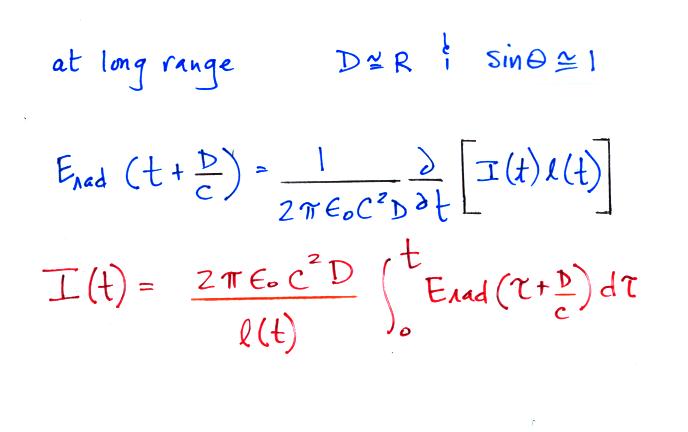 at long range D ≅ R & sinθ ≅ 1
E_rad (t + D/c) = 1/(2πϵ₀C²D) ∂/∂t [I(t) l(t)]
I(t) = (2πϵ₀C²D)/l(t) ∫₀ᵗ E_rad (τ + D/c) dτ